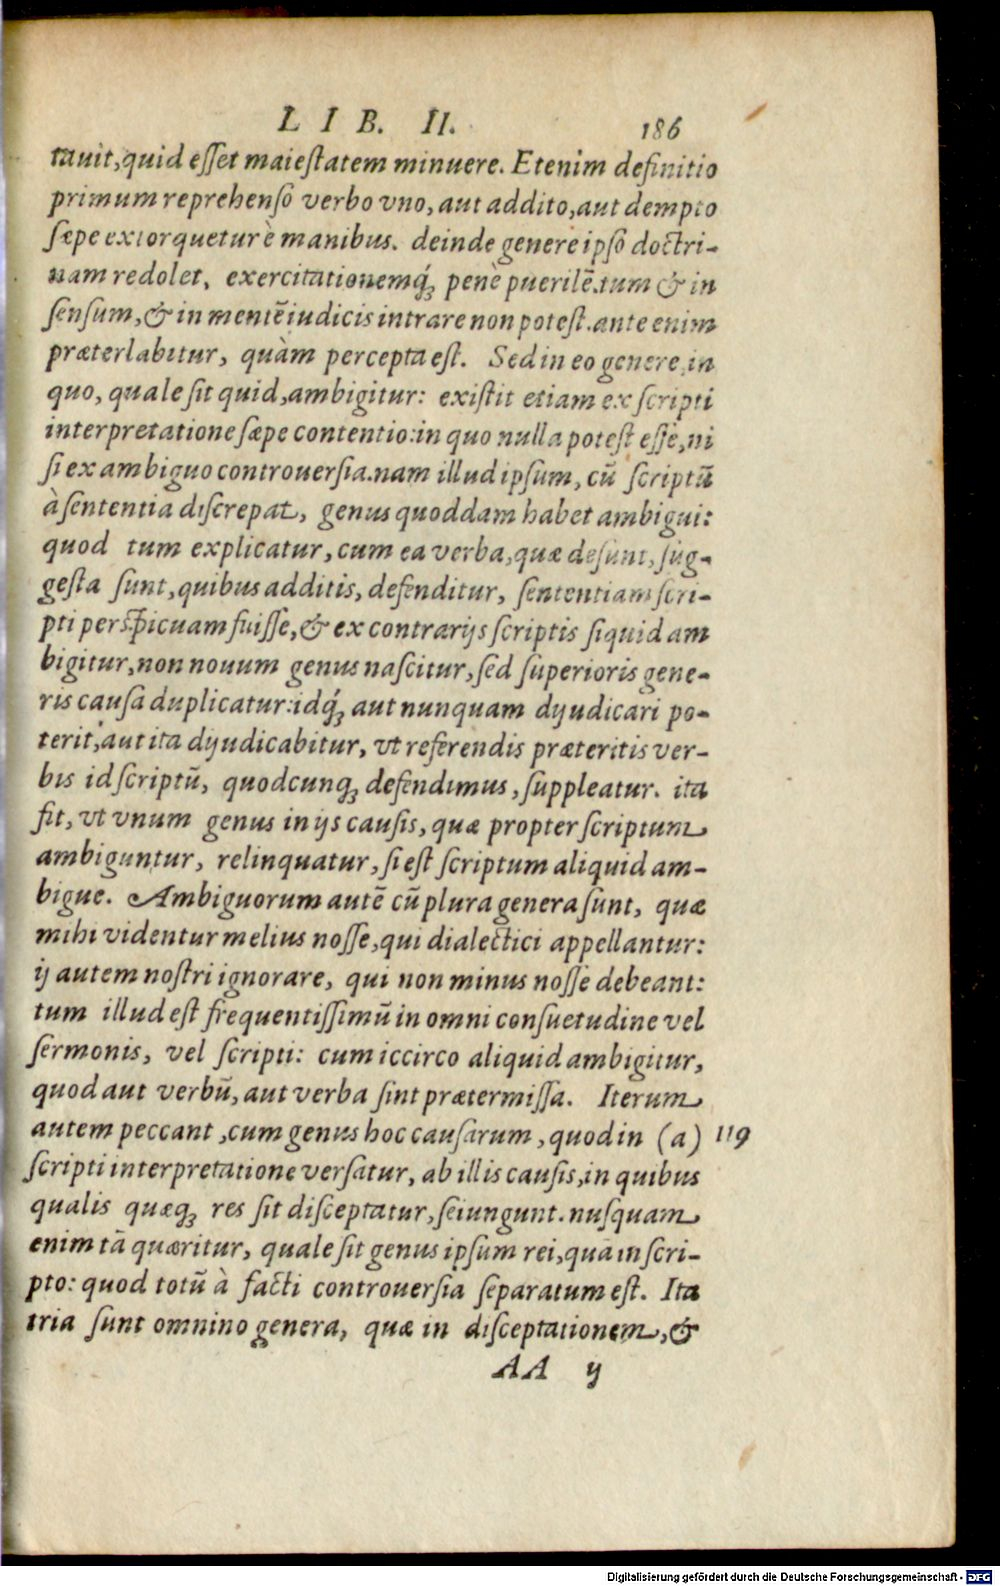 LIB. II. 186
tauit, quid eſſet maieſtatem minuere. Etenim definitio
primum reprehenſo verbo vno, aut addito, aut dempto
ſæpe extorquetur è manibus. deinde genere ipſo doctri-
nam redolet, exercitationemq́ꝫ penè puerilē. tum & in
ſenſum, & in mentē iudicis intrare non poteſt. ante enim
præterlabitur, quàm percepta eſt. Sed in eo genere, in
quo, quale ſit quid, ambigitur: exiſtit etiam ex ſcripti
interpretatione ſæpe contentio: in quo nulla poteſt eſſe, ni
ſi ex ambiguo controuerſia. nam illud ipſum, cū ſcriptū
à ſententia diſcrepat, genus quoddam habet ambigui:
quod tum explicatur, cum ea verba, quæ deſunt, ſug-
geſta ſunt, quibus additis, defenditur, ſententiam ſcri-
pti perſpicuam fuiſſe, & ex contrarijs ſcriptis ſi quid am
bigitur, non nouum genus naſcitur, ſed ſuperioris gene-
ris cauſa duplicatur: idq́ꝫ aut nunquam dijudicari po-
terit, aut ita dijudicabitur, vt referendis præteritis ver-
bis id ſcriptū, quodcunqꝫ defendimus, ſuppleatur. ita
fit, vt vnum genus in ijs cauſis, quæ propter ſcriptum
ambiguntur, relinquatur, ſi eſt ſcriptum aliquid am-
bigue. Ambiguorum autē cū plura genera ſunt, quæ
mihi videntur melius noſſe, qui dialectici appellantur:
ij autem noſtri ignorare, qui non minus noſſe debeant:
tum illud eſt frequentiſſimū in omni conſuetudine vel
ſermonis, vel ſcripti: cum iccirco aliquid ambigitur,
quod aut verbū, aut verba ſint prætermiſſa. Iterum
autem peccant, cum genus hoc cauſarum, quod in (a) 119
ſcripti interpretatione verſatur, ab illis cauſis, in quibus
qualis quæqꝫ res ſit diſceptatur, ſeiungunt. nuſquam
enim tā quæritur, quale ſit genus ipſum rei, quàm ſcri-
pto: quod totū à facti controuerſia ſeparatum eſt. Ita
tria ſunt omnino genera, quæ in diſceptationem, &
AA ij
Digitalisierung gefördert durch die Deutsche Forschungsgemeinschaft - DFG